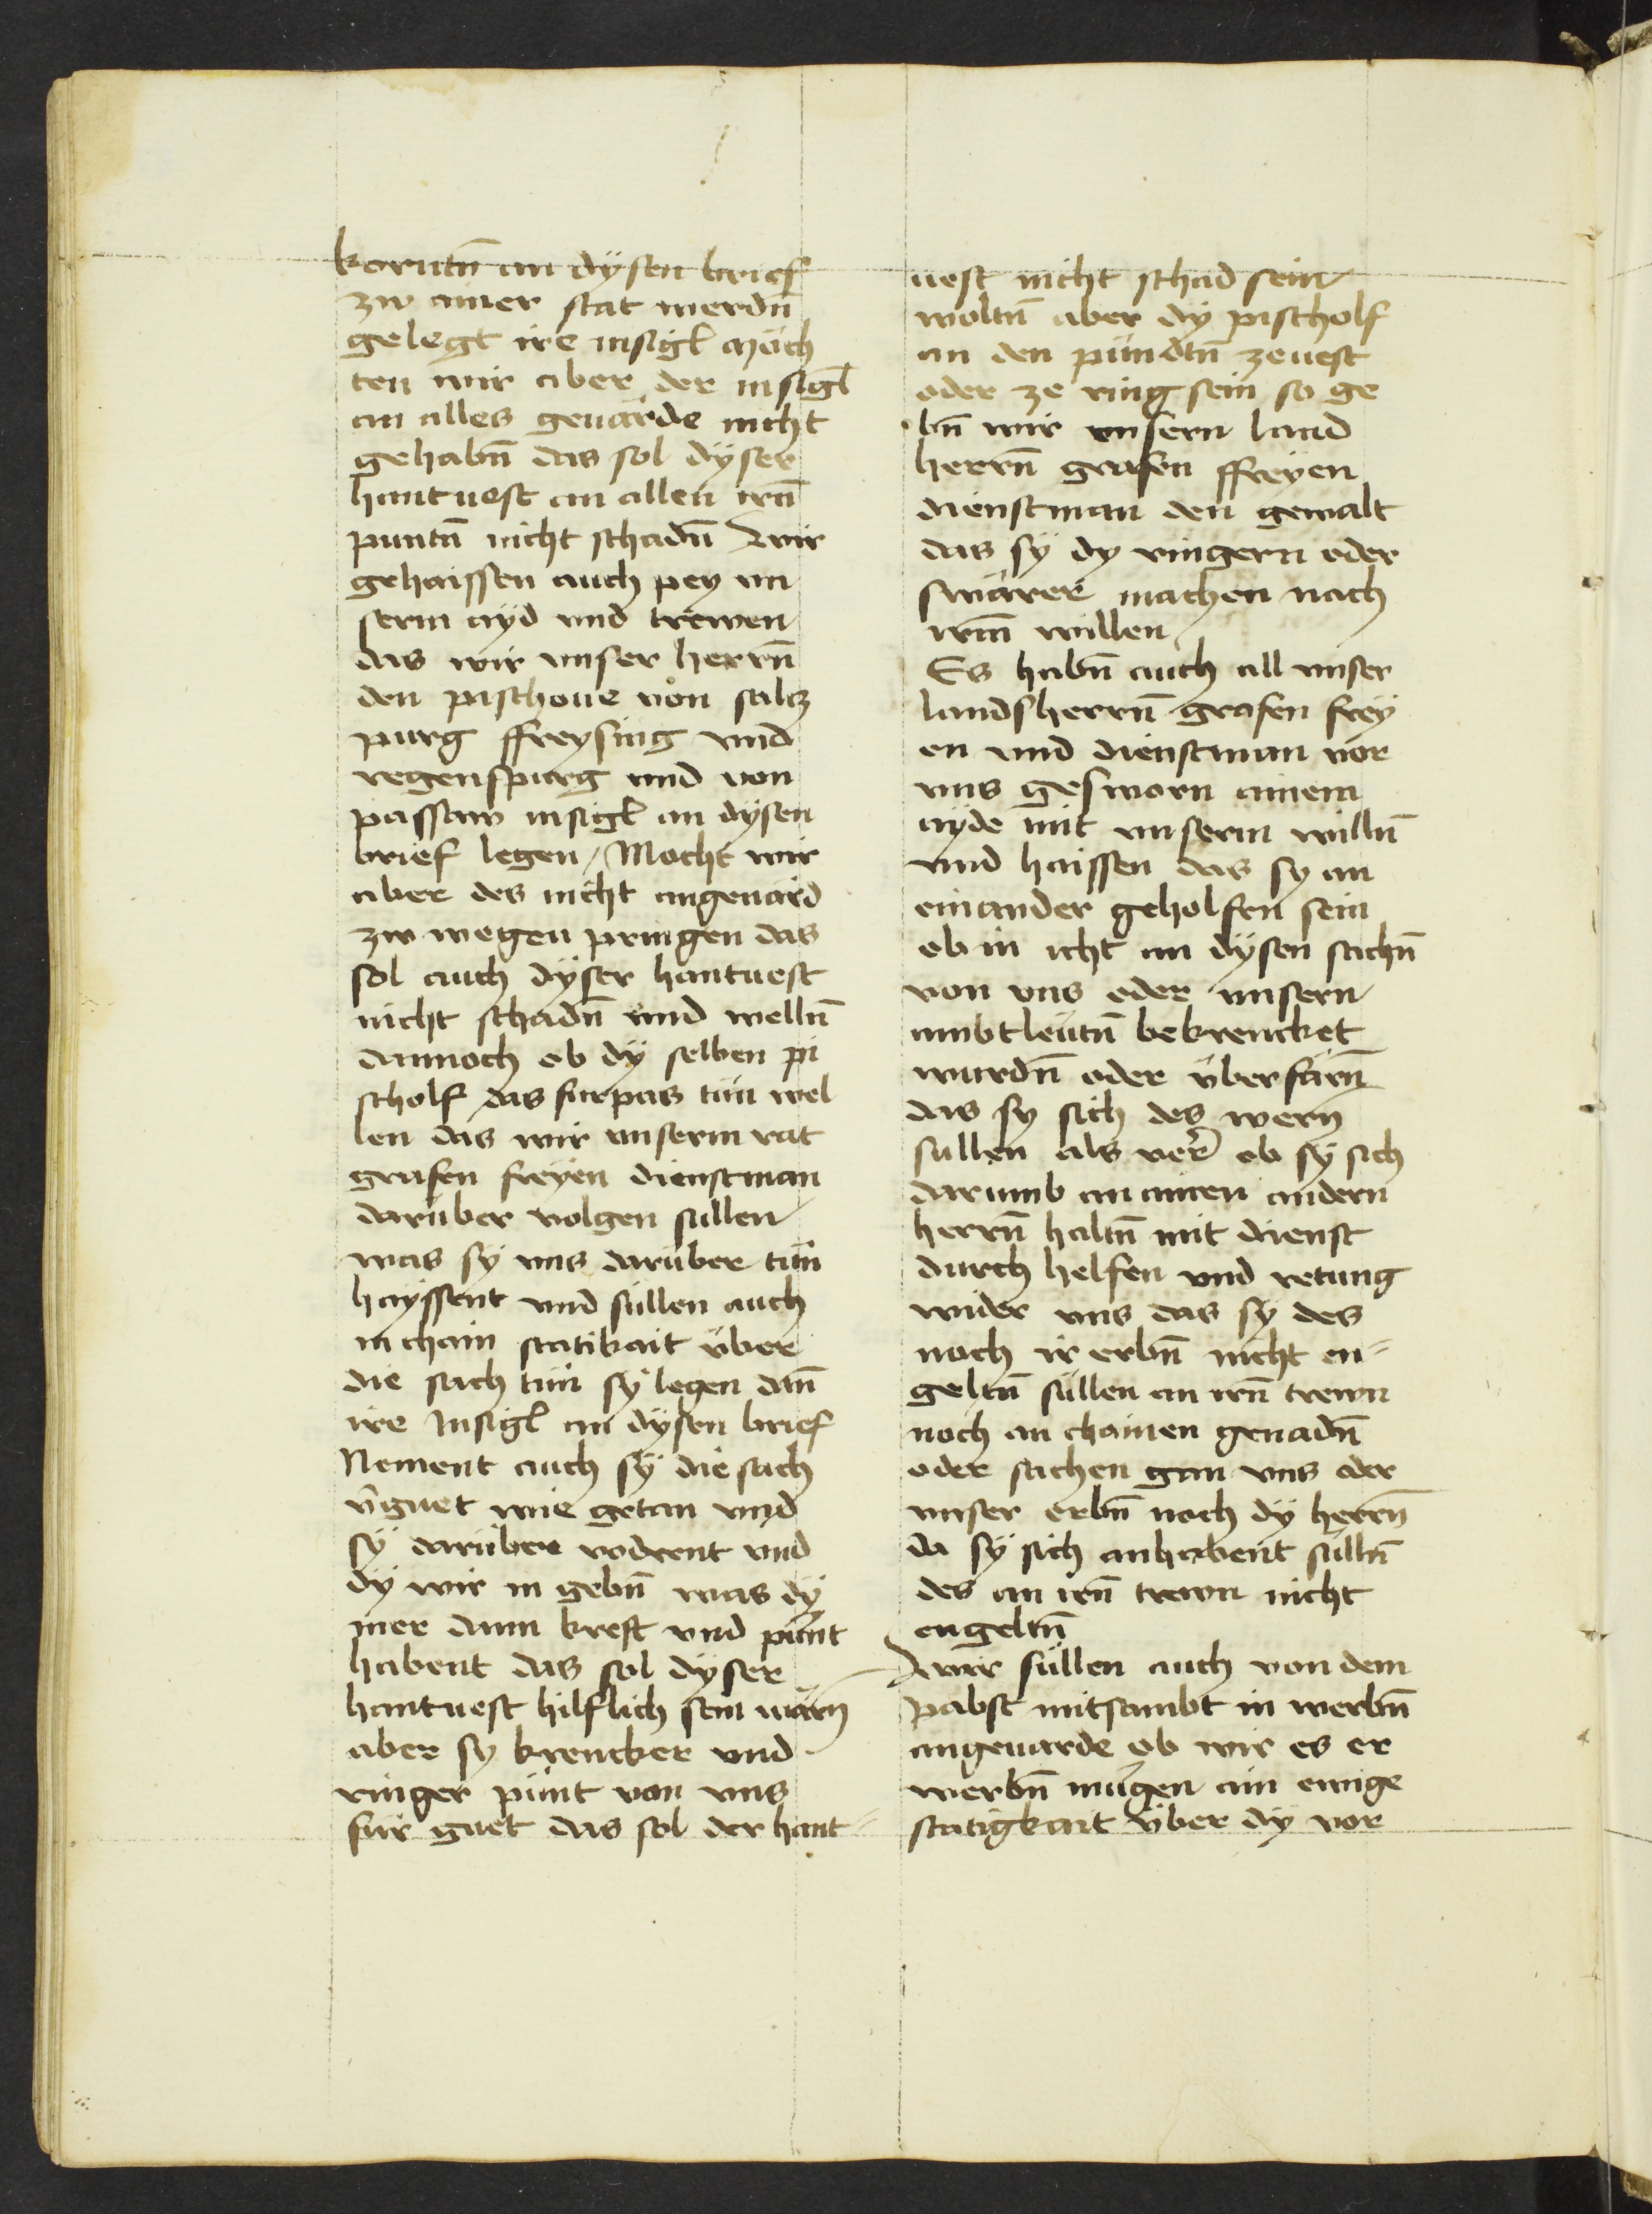 korntn̄ an dÿsen brief
zw ainer stat werdn̄
gelegt ire insigl̄ möch
ten wir aber der insigl̄
an alles geuärde nicht
gehabn̄ das sol dÿser
hantuest an allen irn̄
puntn̄ nicht schadn̄ Wir
gehaissen auch pey vn
serm ayd vnd trewen
das wir vnser herrn̄
den pischoue von salcz
purg ffreysing vnd
regenspurg vnd von
passaw insigl̄ an dysen
brief legen / Mocht wir
aber des nicht angeuärd
zw wegen pringen das
sol auch dÿser hantuest
nicht schadn̄ vnd welln̄
dannoch ob dÿ selben pi
scholf das furpas tün wel
len das wir vnserm rat
grafen freyen dienstman
darüber volgen sullen
was sÿ vns darüber tün
hayssent vnd süllen auch
in chain statikait über
die sach tün sÿ legen dan̄
ire Insigl̄ an dÿsen brief
Nement auch sÿ die sach
v̄guet wie getan vnd
sÿ darüber vodrent vnd
dÿ wir in gebn̄ was dÿ
mer dann kreft vnd pünt
habent das sol dÿser
hantuest hilflich sein wärn̄
aber sy krencker vnd
ringer pünt von vns
für guet das sol der hant
uest nicht schad sein
woltn̄ aber dÿ pischolf
an den pündtn̄ zeuest
oder ze ring sein so ge
bn̄ wir vnsern land
herrn̄ grafen ffreyen
dienstman den gewalt
das sÿ dy ringern oder
swärer machen nach
irm̄ willen
Es habn̄ auch all vnser
landsherrn̄ grafen frey
en vnd dienstman vor
vns gesworn ainem
ayde mit vnserm willn̄
vnd haissen das sy an
einander geholfen sein
ob in icht an dÿsen sachn̄
von vns oder vnsern
ambtleütn̄ bekrencket
wurdn̄ oder überfärn̄
das sy sich des wern
sullen als ver̄ ob sÿ sich
darumb an ainen andern
herrn̄ haltn̄ mit dienst
durch helfen vnd retung
wider vns das sÿ des
noch ir erbn̄ nicht en-
geltn̄ süllen an irn̄ trewn
noch an chainen genadn̄
oder sachen gan vns oder
vnser erbn̄ noch dÿ herrn̄
da sÿ sich anhabent sülln̄
des an irn̄ trewn nicht
engeltn̄
Wir süllen auch von dem
pabst mitsambt in werbn̄
angeuarde ob wir es er
werbn̄ mügen ain ewige
statigkait über dÿ vor